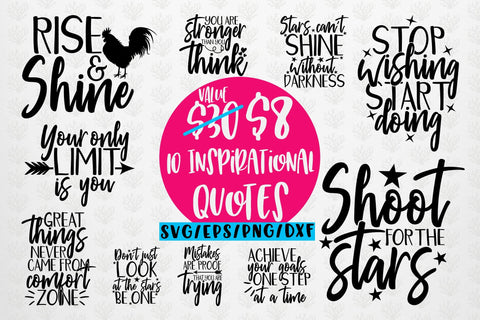 RISE
&
Shine
YOU ARE
stronger
THAN YOU
think
Stars can't
SHINE
without
DARKNESS
STOP
wishing
START
doing
Your only
LIMIT
is you
VALUE
$30 $8
10 INSPIRATIONAL
QUOTES
SVG/EPS/PNG/DXF
Shoot
FOR THE
stars
GREAT
things
NEVER
CAME FROM
comfort
ZONE
Don't just
LOOK
at the stars
BE ONE
Mistakes
ARE PROOF
THAT YOU ARE
trying
ACHIEVE
your goals
ONE STEP
at a time